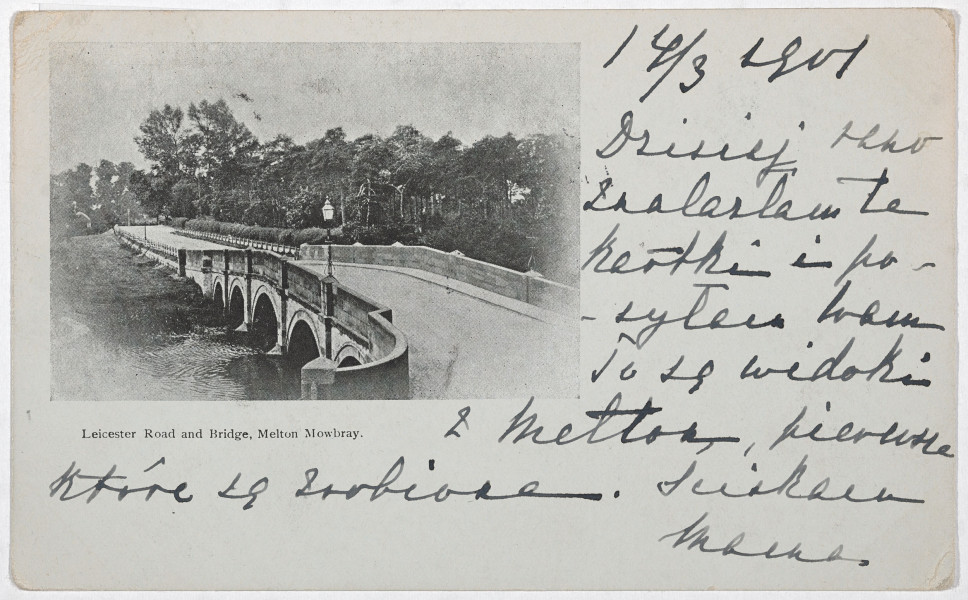 14/3 1901
Dzisiaj rano
znalazłam te
kartki i po-
-syłam Wam
To są widoki
z Melton, pierwsze
które są zrobione. Ściskam
Mama.
Leicester Road and Bridge, Melton Mowbray.